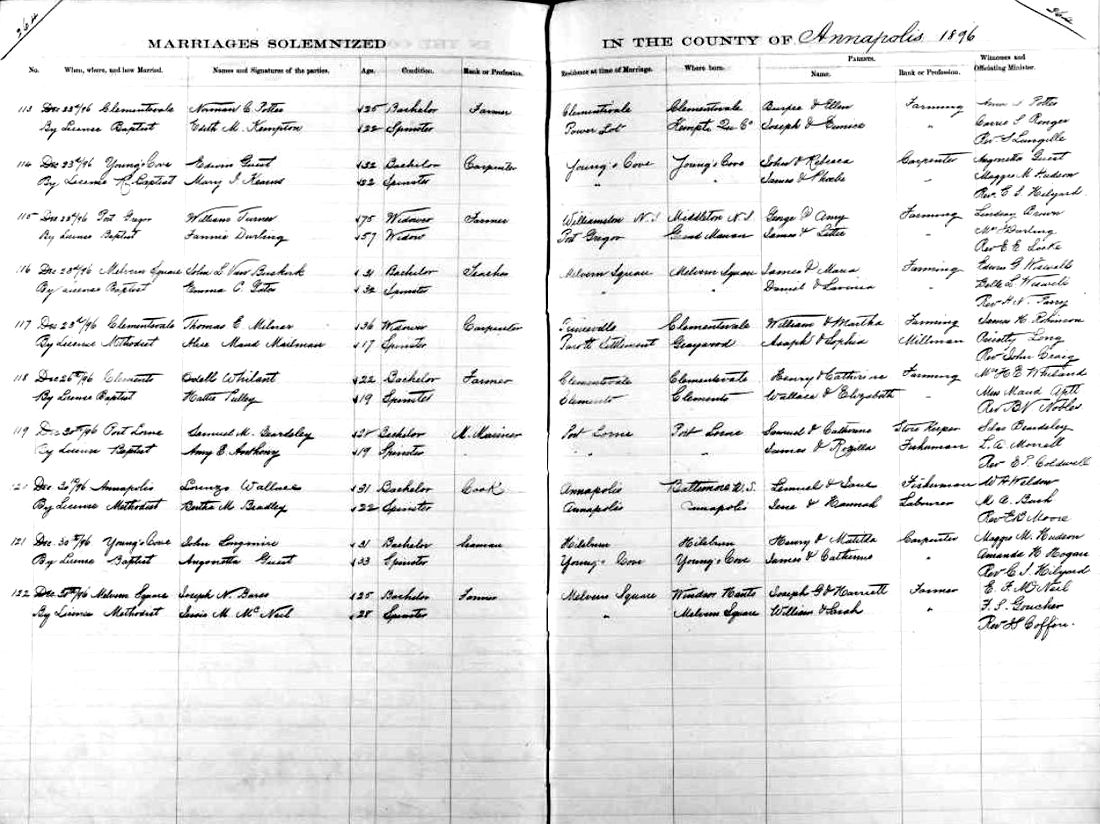 264
264
MARRIAGES SOLEMNIZED
IN THE COUNTY OF Annapolis 1896
No. When, where, and how Married. Names and Signatures of the parties. Age. Condition. Rank or Profession. Residence at time of Marriage. Where born. PARENTS. Name. Rank or Profession. Witnesses and Officiating Minister.
113 Dec 23d/96 Clementsvale Norman C. Potter 25 Bachelor Farmer Clementsvale Clementsvale Burpee & Ellen Farming Potter
By License Baptist Edith M. Kempton 22 Spinster Power Lot Kempt Qu. Co Joseph & Eunice " Carrie L
Rev S Langille
114 Dec 23d/96 Young's Cove Edwin Guest 32 Bachelor Carpenter Young's Cove Young's Cove John & Rebecca Carpenter Guest
By License Baptist Mary I. Kearns 32 Spinster " " James & Phoebe " Maggie M Hudson
Rev. E. I. Hilyard
115 Dec 23d/96 Port William Turner 75 Widower Farmer Williamston N.S Middleton N.S George & Amy Farming Lindsay Brown
By License Baptist Fannie Durling 57 Widow Port Grand Manan James & " Mrs Durling
Rev E E Locke
116 Dec 23d/96 Melvern Square John L Van Buskirk 31 Bachelor Teacher Melvern Square Melvern Square James & Maria Farming G
By License Baptist Emma C. 32 Spinster " " Daniel & Lavinia " L
Rev H. N. Parry
117 Dec 23d/96 Clementsvale Thomas E. Milner 36 Widower Carpenter Clementsvale William & Martha Farming James H. Robinson
By License Methodist Alice Maud Mailman 17 Spinster Settlement Graywood Asaph & Sophia Millman Long
Rev John Craig
118 Dec 26th/96 Clements Odell Whilant 22 Bachelor Farmer Clementsvale Clementsvale Henry & Catherine Farming H E
By License Baptist Hattie 19 Spinster Clements Clements Wallace & Elizabeth " Miss Maud
Rev B N Nobles
119 Dec 30th/96 Port Lorne Samuel M. Beardsley 28 Bachelor M. Mariner Port Lorne Port Lorne Samuel & Catherine Store Keeper Silas Beardsley
By License Baptist Amy E. Anthony 19 Spinster " " James & Rozilla Fisherman L. A Morrell
Rev E P. Coldwell
Dec 30th/96 Annapolis Lorenzo Wallace 31 Bachelor Cook Annapolis Baltimore U.S. Lemuel & Fisherman W H Weldon
By License Methodist Bertha M. Beadley 22 Spinster Annapolis Annapolis & Hannah Labourer M A. Bush
Rev E B Moore
121 Dec 30th/96 Young's Cove John Longmire 31 Bachelor Seaman Hilsburn Hilsburn Henry & Matilda Carpenter Maggie M. Hudson
By License Baptist Guest 33 Spinster Young's Cove Young's Cove James & Catherine " Amanda H Hogan
Rev E. I. Hilyard
122 Dec 30th/96 Melvern Square Joseph N. 25 Bachelor Farmer Melvern Square Windsor Hants Joseph G & Harriett Farmer E. F. McNeil
By License Methodist Jessie M. McNeil 28 Spinster " Melvern Square William & Sarah " F. S. Goucher
Rev Coffin.